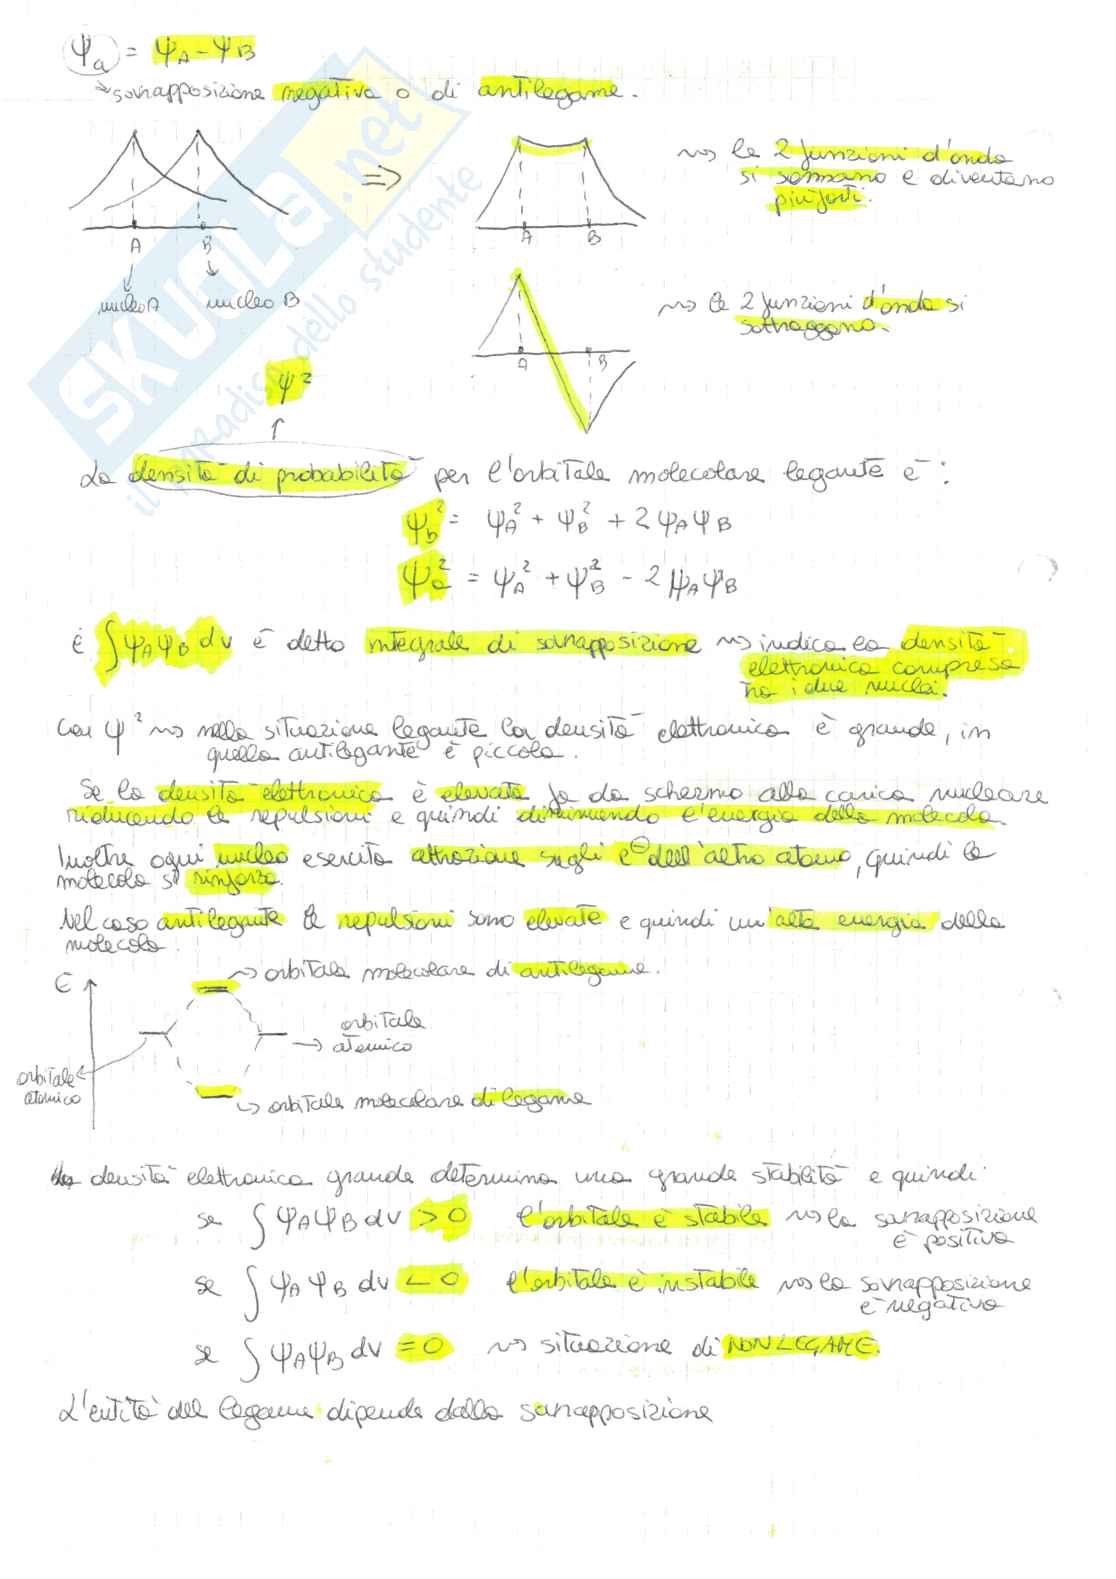 Ψa = ΨA - ΨB
↳ sovrapposizione negativa o di antilegame.
⇒
A B
nucleo A nucleo B
A B
~> le 2 funzioni d'onda
si sommano e diventano
più forti.
A B
~> le 2 funzioni d'onda si
sottraggono.
SKUOLA.net
il paradiso dello studente
Ψ²
↑
La densità di probabilità per l'orbitale molecolare legante è:
Ψb² = ΨA² + ΨB² + 2ΨAΨB
Ψa² = ΨA² + ΨB² - 2ΨAΨB
è ∫ΨAΨB dv è detto integrale di sovrapposizione ~> indica la densità
elettronica compresa
tra i due nuclei.
Con Ψ² ~> nella situazione legante la densità elettronica è grande, in
quella antilegante è piccola.
Se la densità elettronica è elevata fa da schermo alla carica nucleare
riducendo le repulsioni e quindi diminuendo l'energia della molecola.
Inoltre ogni nucleo esercita attrazione sugli e⊖ dell'altro atomo, quindi la
molecola si rinforza.
Nel caso antilegante le repulsioni sono elevate e quindi un'alta energia della
molecola.
E
↳ orbitale molecolare di antilegame.
orbitale
atomico
orbitale
atomico
↳ orbitale molecolare di legame
densità elettronica grande determina una grande stabilità e quindi
se ∫ΨAΨB dv > 0 l'orbitale è stabile ~> la sovrapposizione
è positiva
se ∫ΨAΨB dv < 0 l'orbitale è instabile ~> la sovrapposizione
è negativa
se ∫ΨAΨB dv = 0 ~> situazione di NON LEGAME.
L'entità del legame dipende dalla sovrapposizione